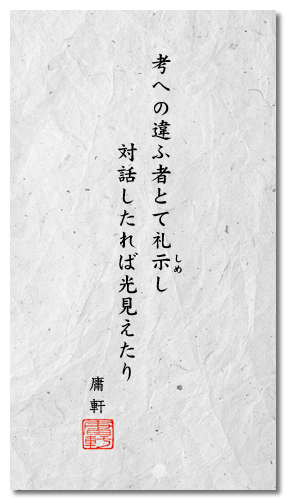 考への違ふ者とて礼示し
しめ
対話したれば光見えたり
庸軒
庸軒